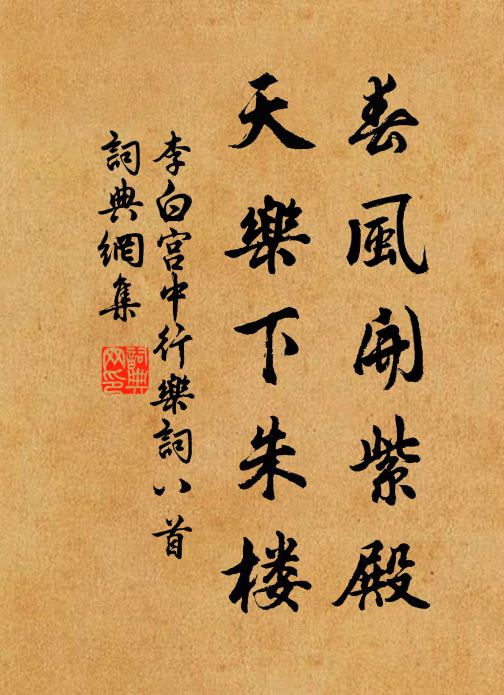 春風開紫殿
天樂下朱楼
李白宮中行樂詞八首
詞典網集
詞典网印